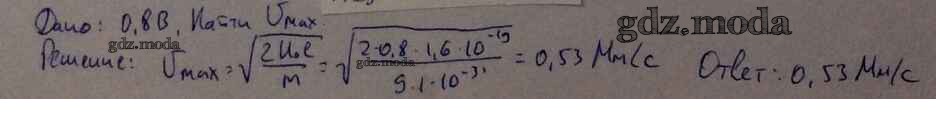 Дано: 0,8В, Найти Vmax.
gdz.moda
Решение: Vmax = √(2U₀e/m) = √(2·0,8·1,6·10⁻¹⁹/9,1·10⁻³¹) = 0,53 Мм/с Ответ: 0,53 Мм/с
gdz.moda
gdz.moda